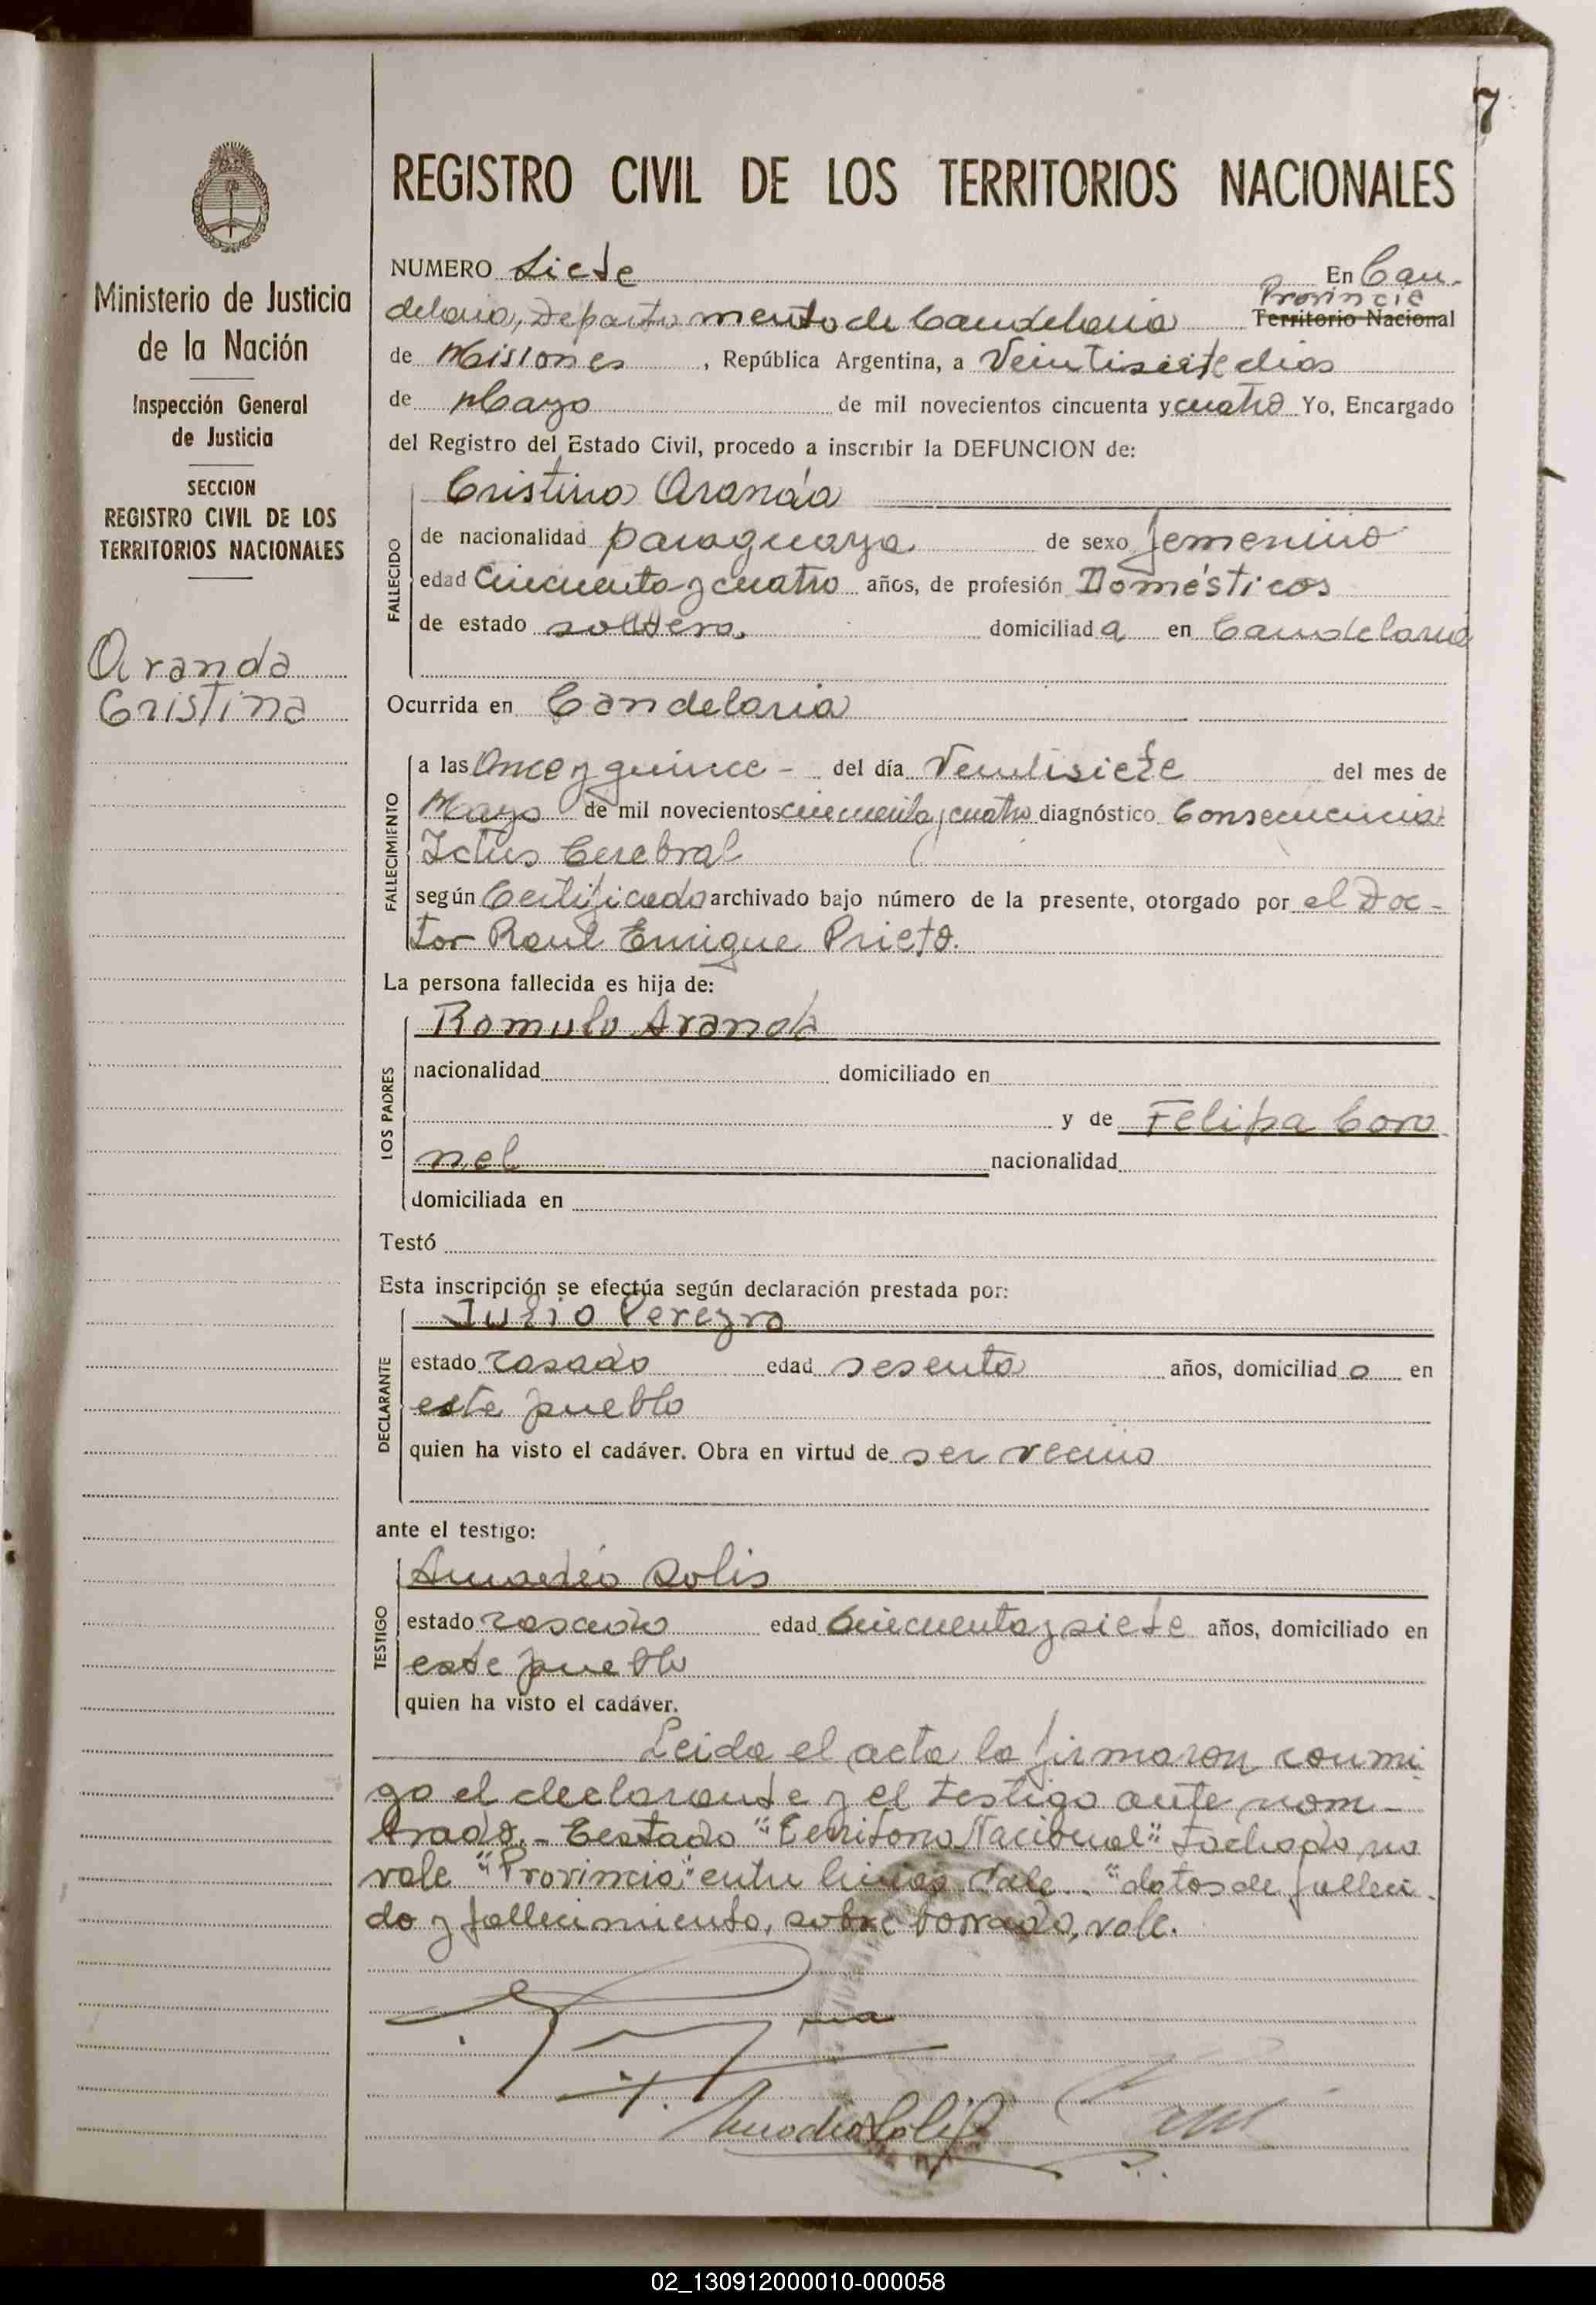 7
REGISTRO CIVIL DE LOS TERRITORIOS NACIONALES
Ministerio de Justicia
de la Nación
Inspección General
de Justicia
SECCION
REGISTRO CIVIL DE LOS
TERRITORIOS NACIONALES
Aranda
Cristina
NUMERO Siete En Can-
Provincia
delaria, Departamento de Candelaria Territorio Nacional
de Misiones, República Argentina, a Veintisiete dias
de Mayo de mil novecientos cincuenta y cuatro Yo, Encargado
del Registro del Estado Civil, procedo a inscribir la DEFUNCION de:
Cristina Aranda
FALLECIDO
de nacionalidad paraguaya de sexo femenino
edad Cincuenta y cuatro años, de profesión Domésticos
de estado soltera. domiciliada en Candelaria
Ocurrida en Candelaria
FALLECIMIENTO
a las Once y quince - del día Veintisiete del mes de
Mayo de mil novecientos cincuenta y cuatro diagnóstico Consecuencia
Ictus Cerebral
según Certificado archivado bajo número de la presente, otorgado por el Doc-
tor Raul Enrique Prieto.
La persona fallecida es hija de:
LOS PADRES
Romulo Aranda
nacionalidad domiciliado en
y de Felipa Coro
nel nacionalidad
domiciliada en
Testó
Esta inscripción se efectúa según declaración prestada por:
DECLARANTE
Julio Pereyra
estado casado edad sesenta años, domiciliado en
este pueblo
quien ha visto el cadáver. Obra en virtud de ser vecino
ante el testigo:
TESTIGO
Amadeo Solis
estado casado edad Cincuenta y siete años, domiciliado en
este pueblo
quien ha visto el cadáver.
Leida el acta la firmaron conmi-
go el declarante y el testigo ante nom-
brado.- Testado "Territorio Nacional" tachado no
vale "Provincia" entre lineas Vale.. "datos de falleci-
do y fallecimiento, sobre borrado, vale.
Amadeo Solis
02_130912000010-000058